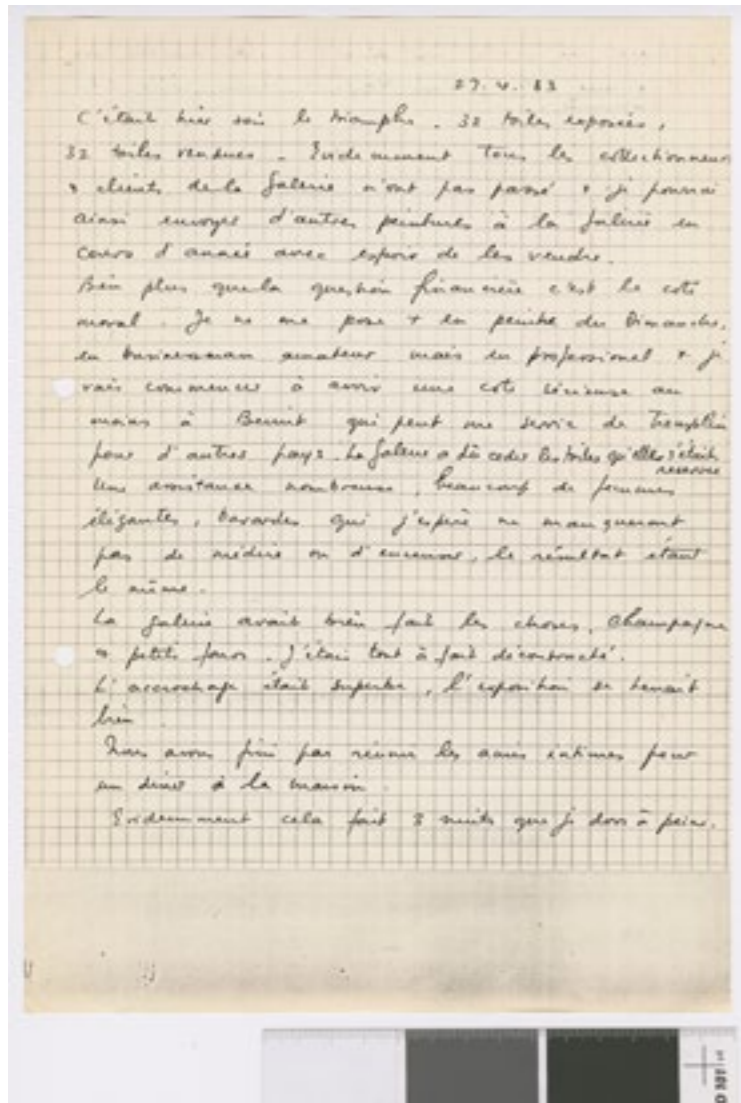 27.4.83
C'était hier soir le triomphe. 32 toiles exposées,
32 toiles vendues. Evidemment tous les collectionneurs
+ clients de la Galerie n'ont pas passé + je pourrai
ainsi envoyer d'autres peintures à la Galerie en
cours d'année avec espoir de les vendre.
Bien plus que la question financière c'est le coté
moral. Je ne me pose + en peintre du Dimanche,
en businessman amateur mais en professionnel + je
vais commencer à avoir une cote sérieuse au
moins à Beirut qui peut me servir de tremplin
pour d'autres pays. La Galerie a dû ceder les toiles qu'elle s'était
reservée
Une assistance nombreuse, beaucoup de femmes
élégantes, bavardes qui j'espère ne manqueront
pas de médire ou d'encenser, le résultat étant
le même.
La galerie avait bien fait les choses, Champagne
+ petits fours. J'étais tout à fait décontracté.
L'accrochage était superbe, l'exposition se tenait
bien.
Nous avons fini par réunir les amis intimes pour
un diner à la maison.
Evidemment cela fait 3 nuits que je dors à peine.